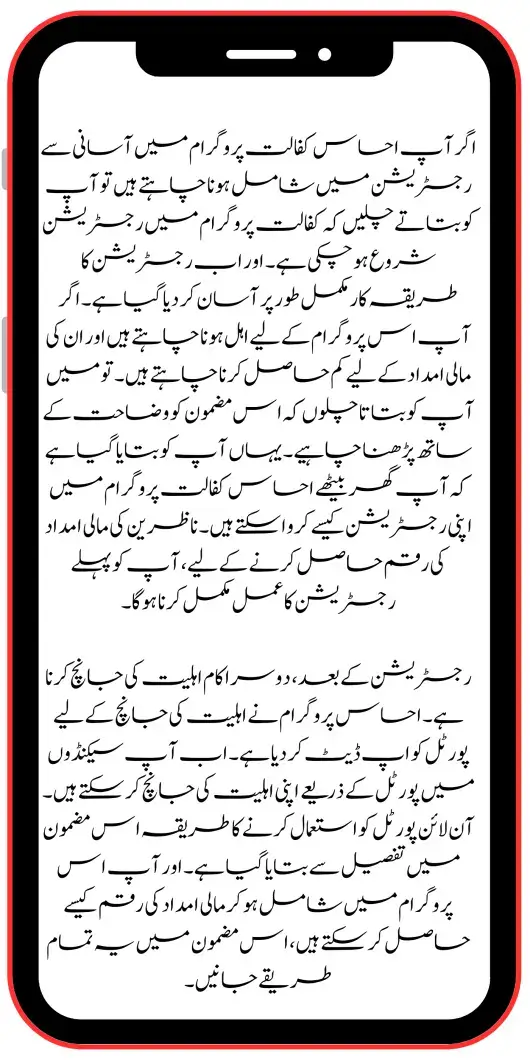 اگر آپ احساس کفالت پروگرام میں آسانی سے
رجسٹریشن میں شامل ہونا چاہتے ہیں تو آپ
کو بتاتے چلیں کہ کفالت پروگرام میں رجسٹریشن
شروع ہو چکی ہے۔ اور اب رجسٹریشن کا
طریقہ کار مکمل طور پر آسان کر دیا گیا ہے۔ اگر
آپ اس پروگرام کے لیے اہل ہونا چاہتے ہیں اور ان کی
مالی امداد کے لیے کم حاصل کرنا چاہتے ہیں۔ تو میں
آپ کو بتاتا چلوں کہ اس مضمون کو وضاحت کے
ساتھ پڑھنا چاہیے۔ یہاں آپ کو بتایا گیا ہے
کہ آپ گھر بیٹھے احساس کفالت پروگرام میں
اپنی رجسٹریشن کیسے کروا سکتے ہیں۔ ناظرین کی مالی امداد
کی رقم حاصل کرنے کے لیے، آپ کو پہلے
رجسٹریشن کا عمل مکمل کرنا ہوگا۔
رجسٹریشن کے بعد، دوسرا کام اہلیت کی جانچ کرنا
ہے۔ احساس پروگرام نے اہلیت کی جانچ کے لیے
پورٹل کو اپ ڈیٹ کر دیا ہے۔ اب آپ سیکنڈوں
میں پورٹل کے ذریعے اپنی اہلیت کی جانچ کر سکتے ہیں۔
آن لائن پورٹل کو استعمال کرنے کا طریقہ اس مضمون
میں تفصیل سے بتایا گیا ہے۔ اور آپ اس
پروگرام میں شامل ہو کر مالی امداد کی رقم کیسے
حاصل کر سکتے ہیں، اس مضمون میں یہ تمام
طریقے جانیں۔